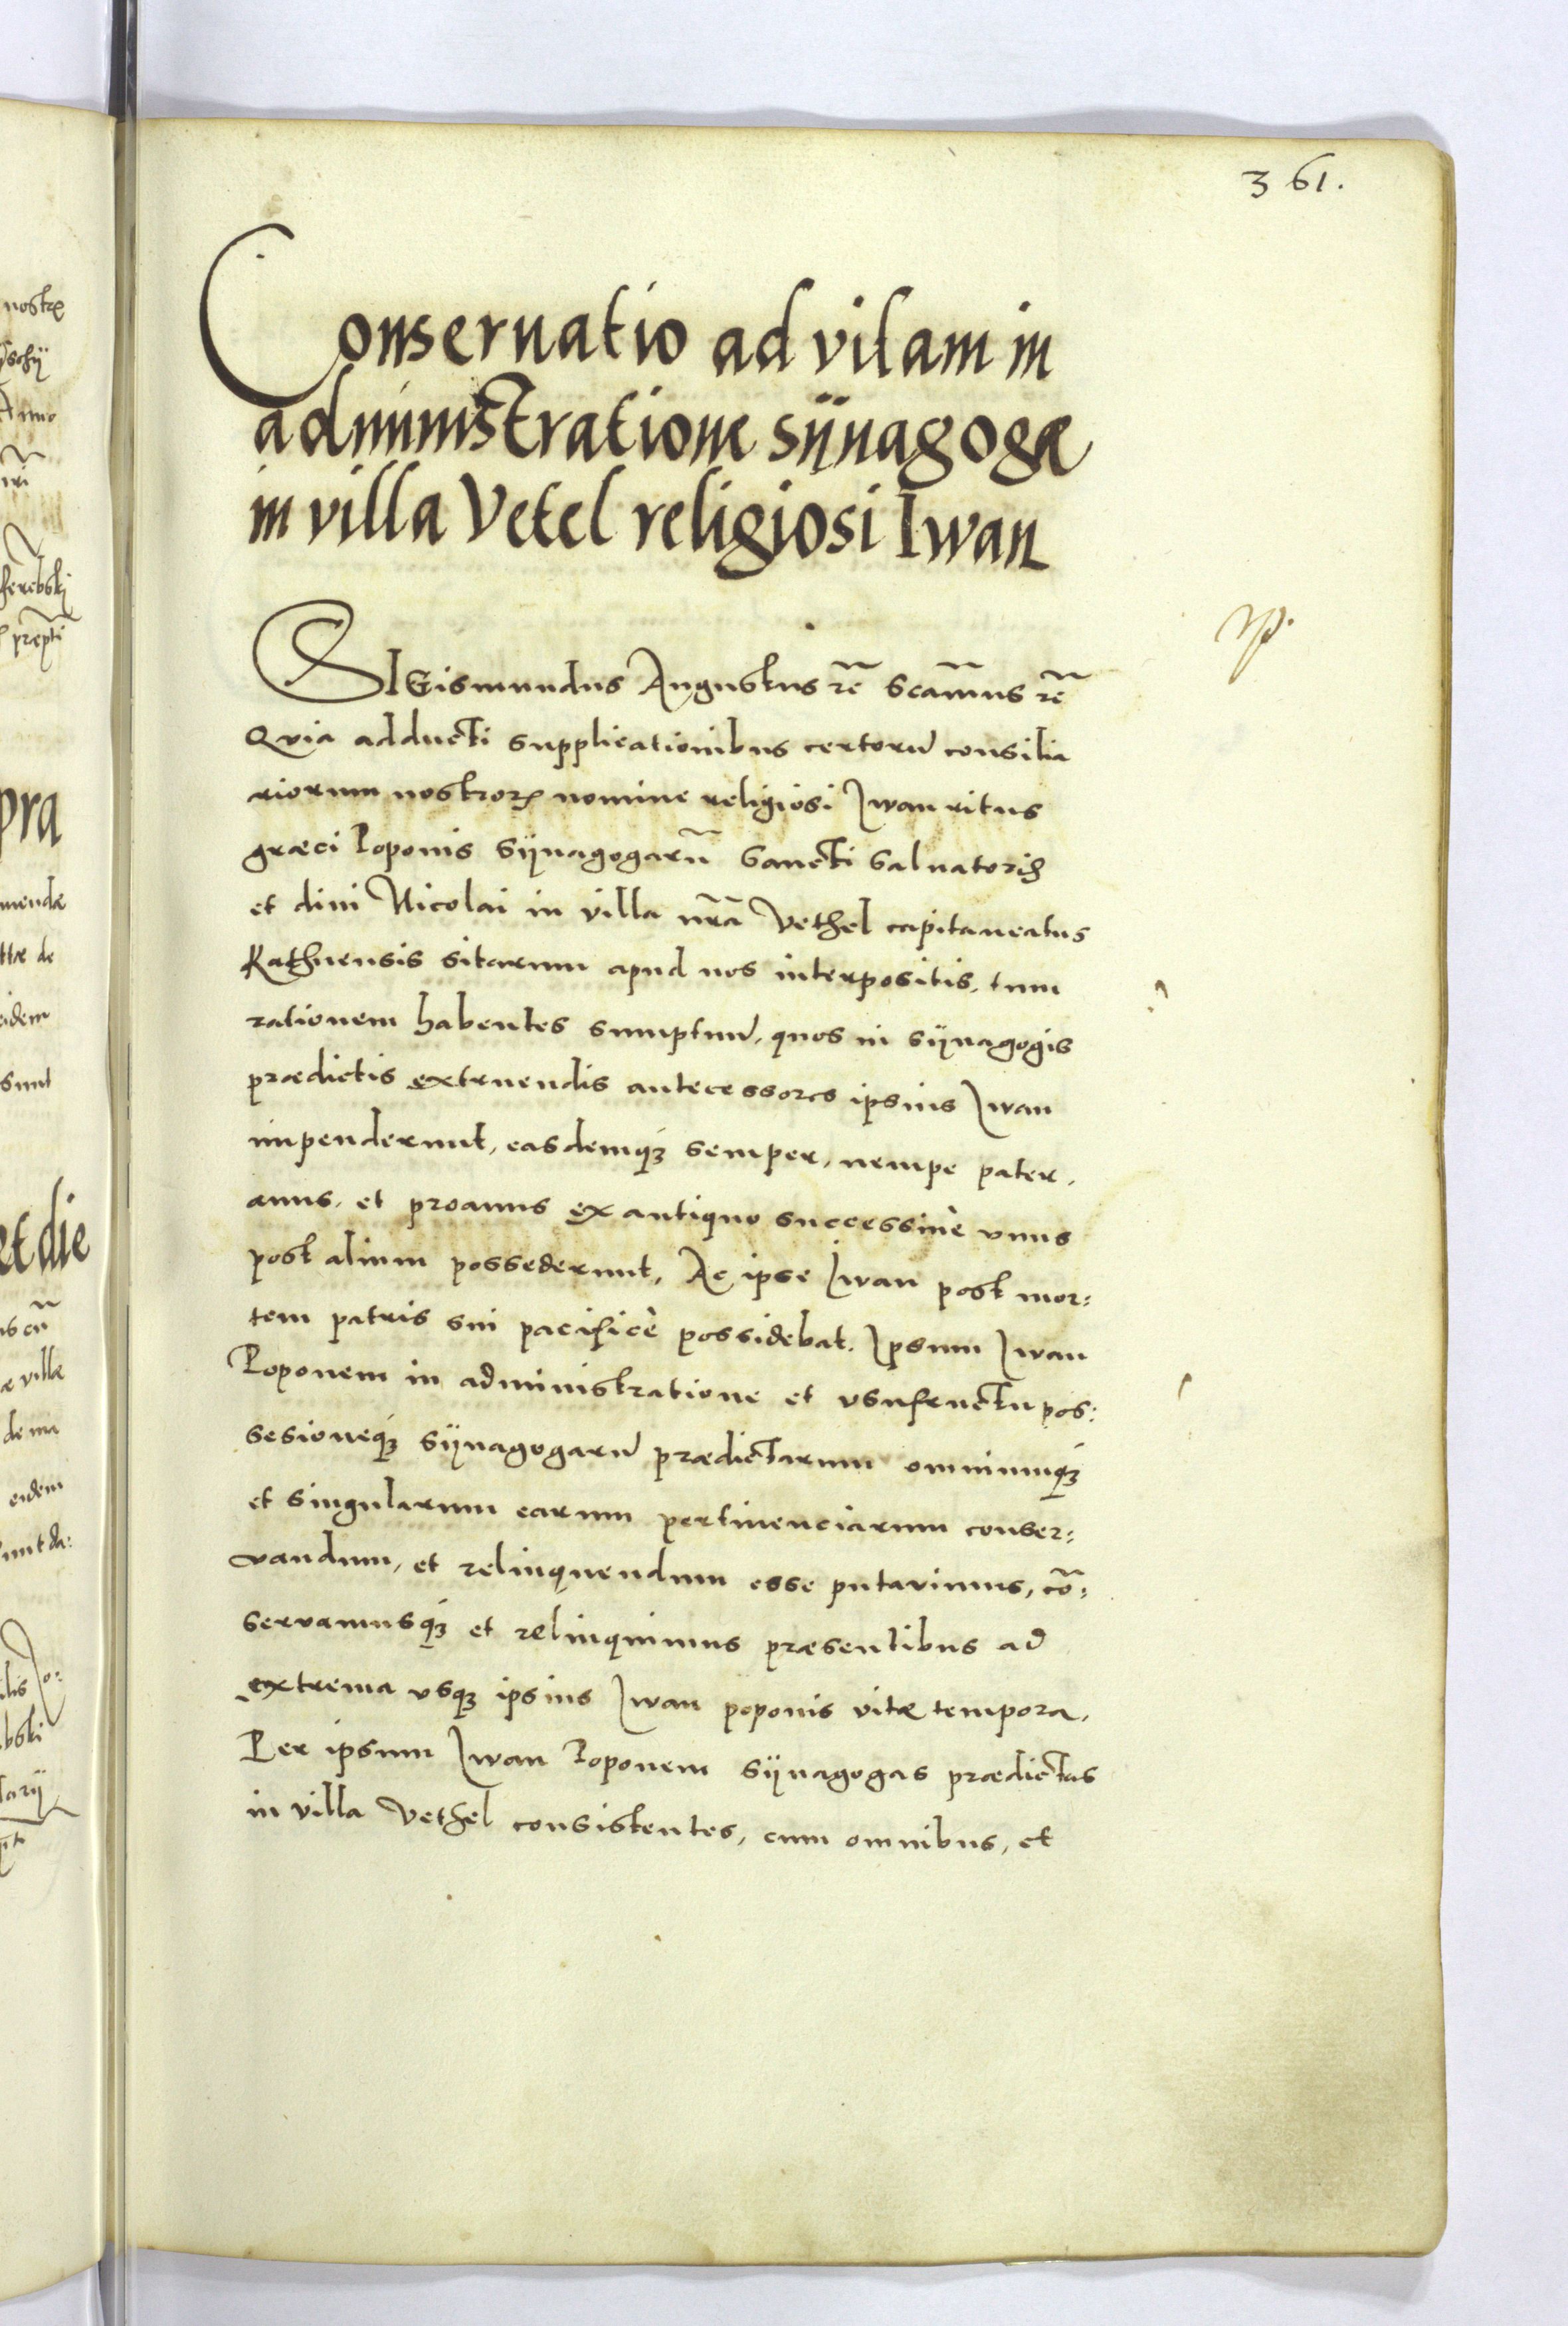 361.
Conseruatio ad vitam in
administratione sÿnagogæ
in villa Vetel religiosi Iwan
SIGismundus Augustus rē̃ Scam̃us rē̃
Quia adducti supplicationibus certorũ consilia
riorum nostroꝝ nomine religiosi Iwan ritus
græci Poponis Sÿnagogarũ Sancti Saluatoris
et diui Nicolai in villa nr̃a Vethel capitaneatus
Rathnensis sitarum apud nos interpositis, tum
rationem habentes sumptuũ, quos in sÿnagogis
prædictis extruendis antecessores ipsius Iwan
impenderunt, easdemqꝫ semper, nempe pater,
auus, et proauus ex antiquo successiuè vnus
post alium possederunt, Ac ipse Iwan post mor:
tem patris sui pacificè possidebat. Ipsum Iwan
Poponem in administratione et vsufructu pos:
sesioneqꝫ sÿnagogarũ prædictarum omniumqꝫ
et singularum earum pertinenciarum conser:
vandum, et relinquendum esse putavimus, cõ:
servamusqꝫ et relinquimus præsentibus ad
extrema vsqꝫ ipsius Iwan poponis vitæ tempora,
Per ipsum Iwan Poponem sÿnagogas prædictas
in villa Vethel consistentes, cum omnibus, et
nostræ
Anno
præpti
pra
mendæ
ttæ de
eidem
sunt
et die
æ villæ
de ma
eidem
sunt da: